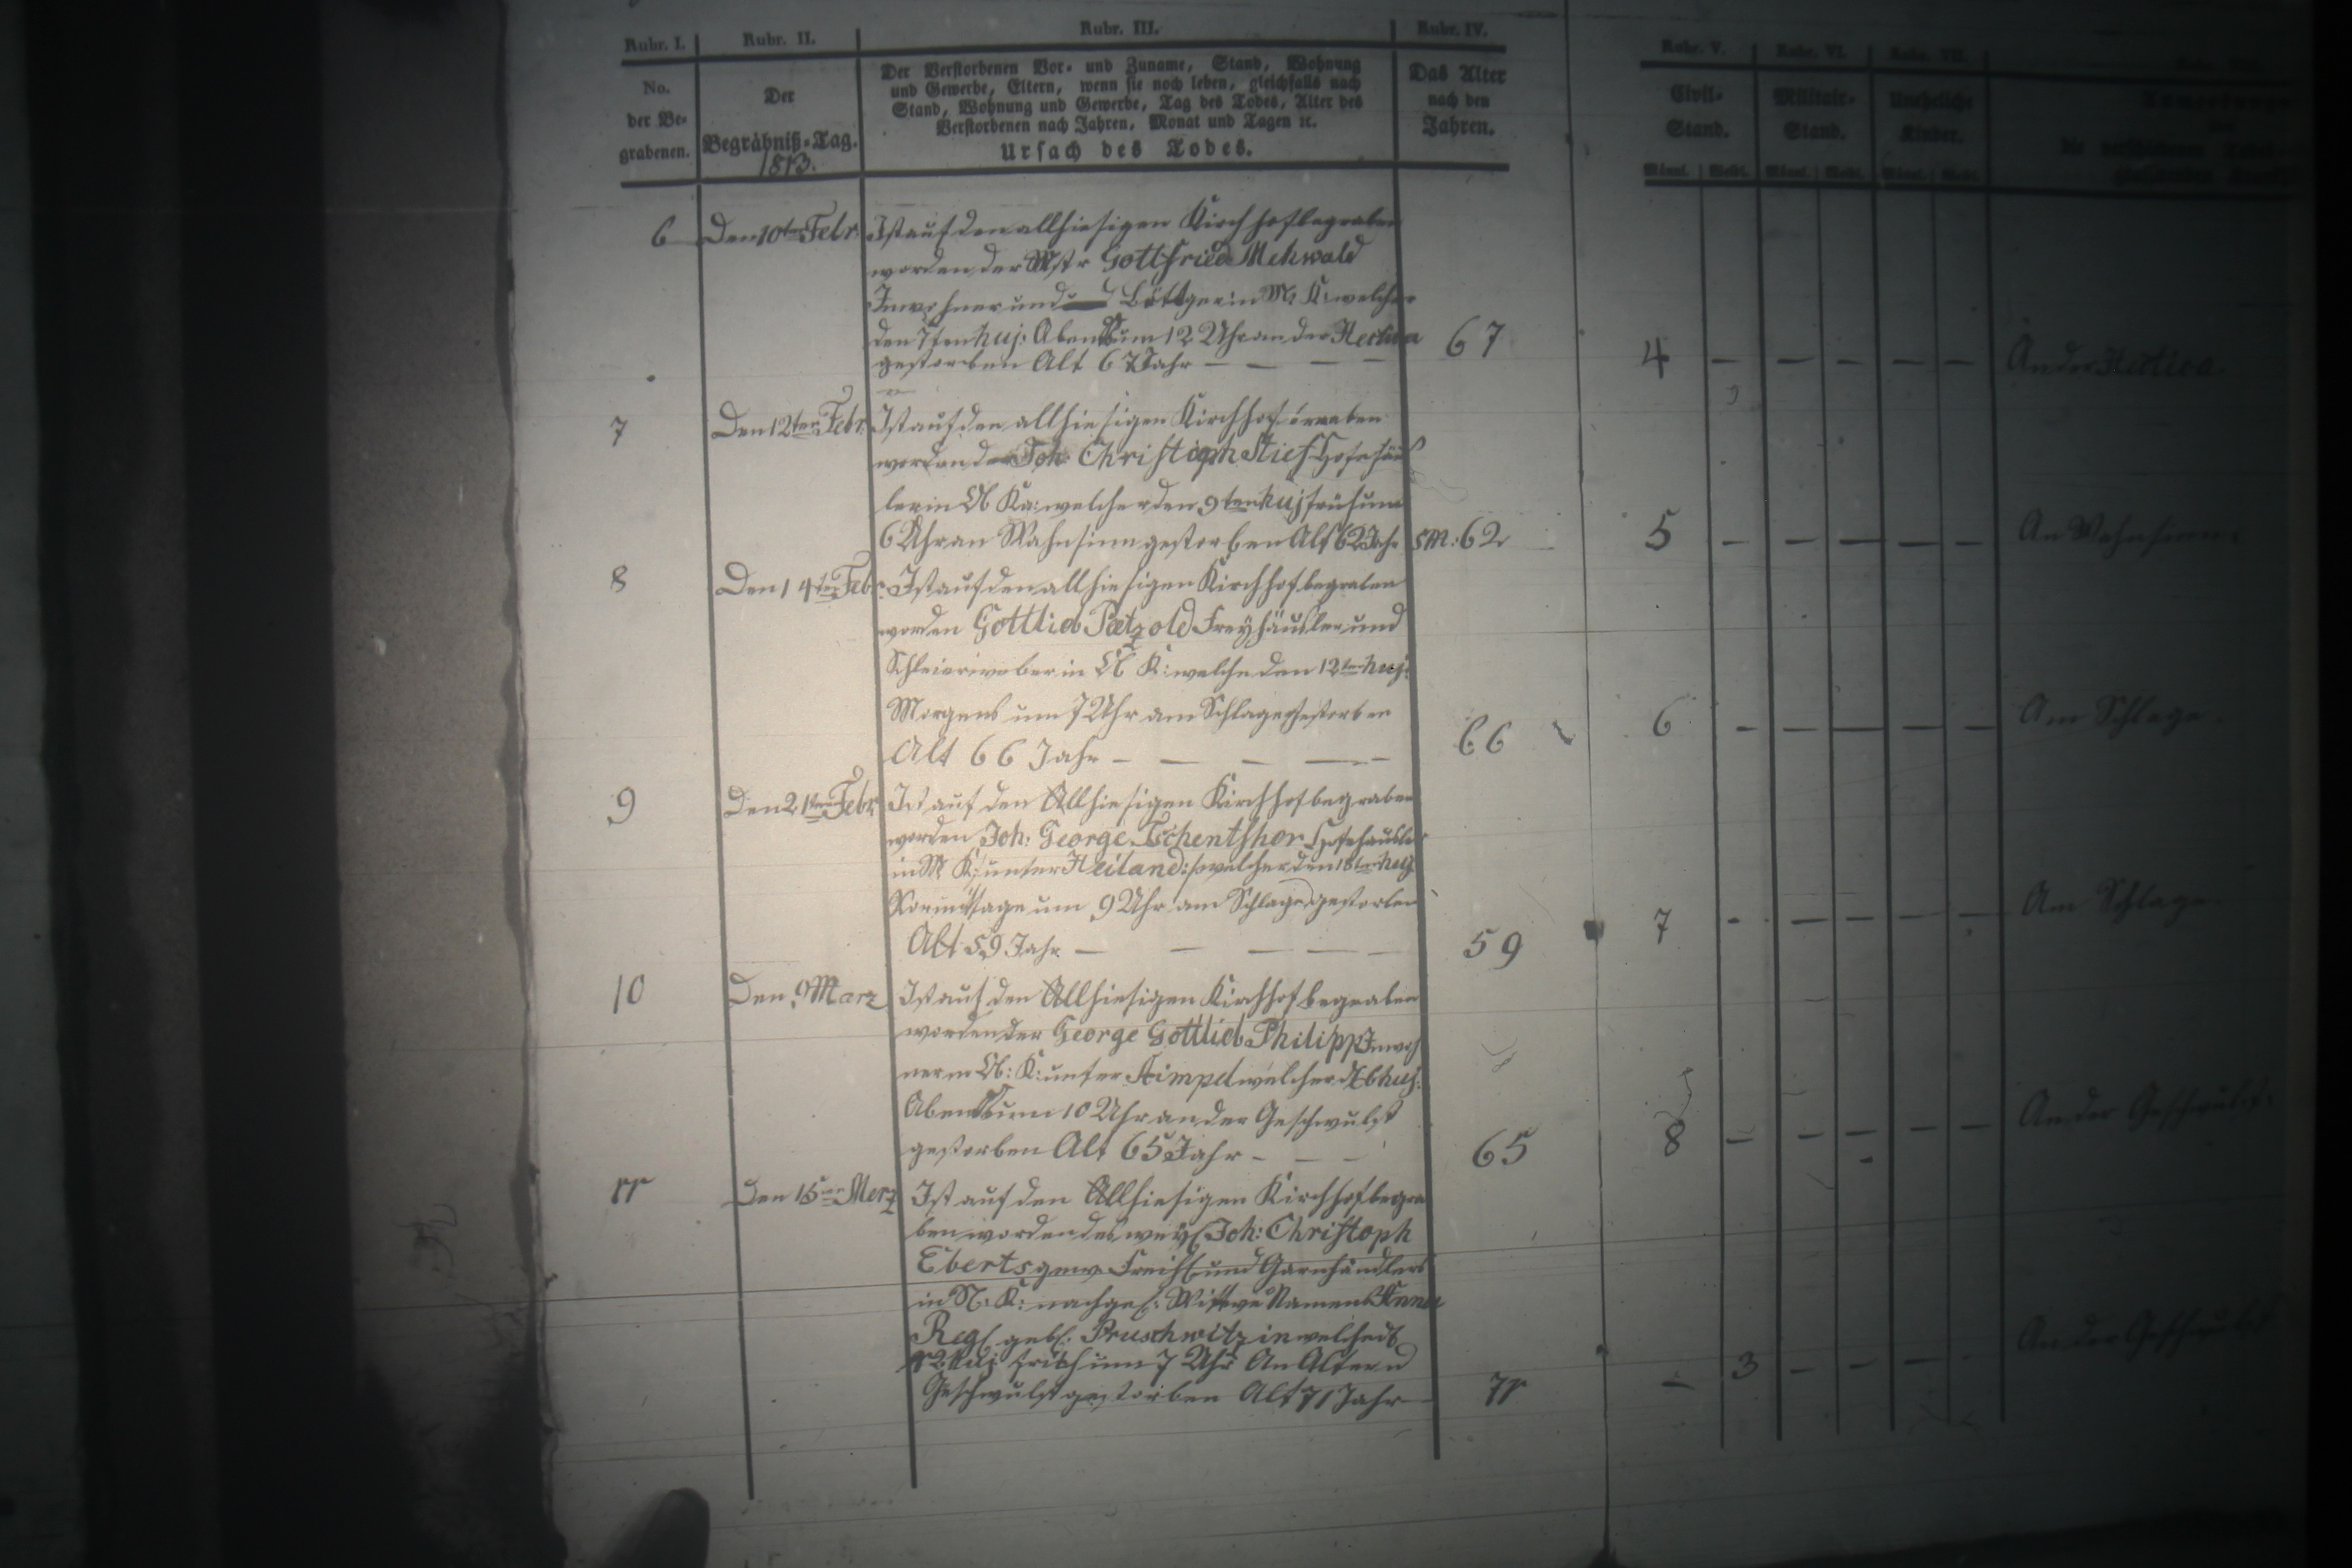 Rubr. I.
Rubr. II.
Rubr. III.
Rubr. IV.
Rubr. V.
Rubr. VI.
Rubr. VII.
No.
der Be-
grabenen.
Der
Begräbniß-Tag.
1813.
Der Verstorbenen Vor- und Zuname, Stand, Wohnung
und Gewerbe, Eltern, wenn sie noch leben, gleichfalls nach
Stand, Wohnung und Gewerbe, Tag des Todes, Alter des
Verstorbenen nach Jahren, Monat und Tagen ꝛc.
Ursach des Todes.
Das Alter
nach den
Jahren.
Civil-
Stand.
Militair-
Stand.
Uneheliche
Kinder.
Männl. Weibl. Männl. Weibl. Männl. Weibl.
6 Den 10ten Febr.
Ist auf den allhiesigen Kirchhof begraben
worden der Mstr Gottfried Mehwald
Inwohner und Böttger in M. K: welcher
den 7ten huj: Abends um 12 Uhr an der Hectica
gestorben Alt 67 Jahr — — — —
67
4 — — — — — An der Hectica.
7 Den 12ten Febr.
Ist auf den allhiesigen Kirchhof
worden der Joh: Christoph Stief Hofehäus
ler in Ob Ka: welcher den 9ten huj früh um
6 Uhr an Wahnsinn gestorben Alt 62 Jahr 5 M: 62
5 — — — — — An Wahnsinn.
8 Den 14ten Febr.
Ist auf den allhiesigen Kirchhof begraben
worden Gottlieb Pätzold Freyhäusler und
Schleierweber in Ob K: welcher den 12ten huj:
Morgens um 7 Uhr am Schlage gestorben
Alt 66 Jahr — — — — —
66
6 — — — — — Am Schlage.
9 Den 21ten Febr.
Ist auf den Allhiesigen Kirchhof begraben
worden Joh: George Tschentsher Hofehäusler
in M K:/: unter Heiland:/ welcher den 18ten huj
Vormittage um 9 Uhr am Schlage gestorben
Alt 59 Jahr — — — — —
59
7 — — — — — Am Schlage.
10 Den 9 Marz
Ist auf den Allhiesigen Kirchhof begraben
worden der George Gottlieb Philipp Inwoh
ner in Ob: K: unter welcher d 6 huj:
Abends um 10 Uhr an der Geschwulst
gestorben Alt 65 Jahr — — —
65
8 — — — — — An der Geschwulst.
11 Den 15ten Merz
Ist auf den Allhiesigen Kirchhof begra
ben worden des weyl Joh: Christoph
Eberts gew Freih und Garnhändlers
in N: K: nachgel: Wittwe Namens Anna
Reg: geb: Pruschwitz in welche d
12 huj früh um 7 Uhr An Alter u
Geschwulst gestorben Alt 71 Jahr —
71
— 3 — — — An der Geschwulst